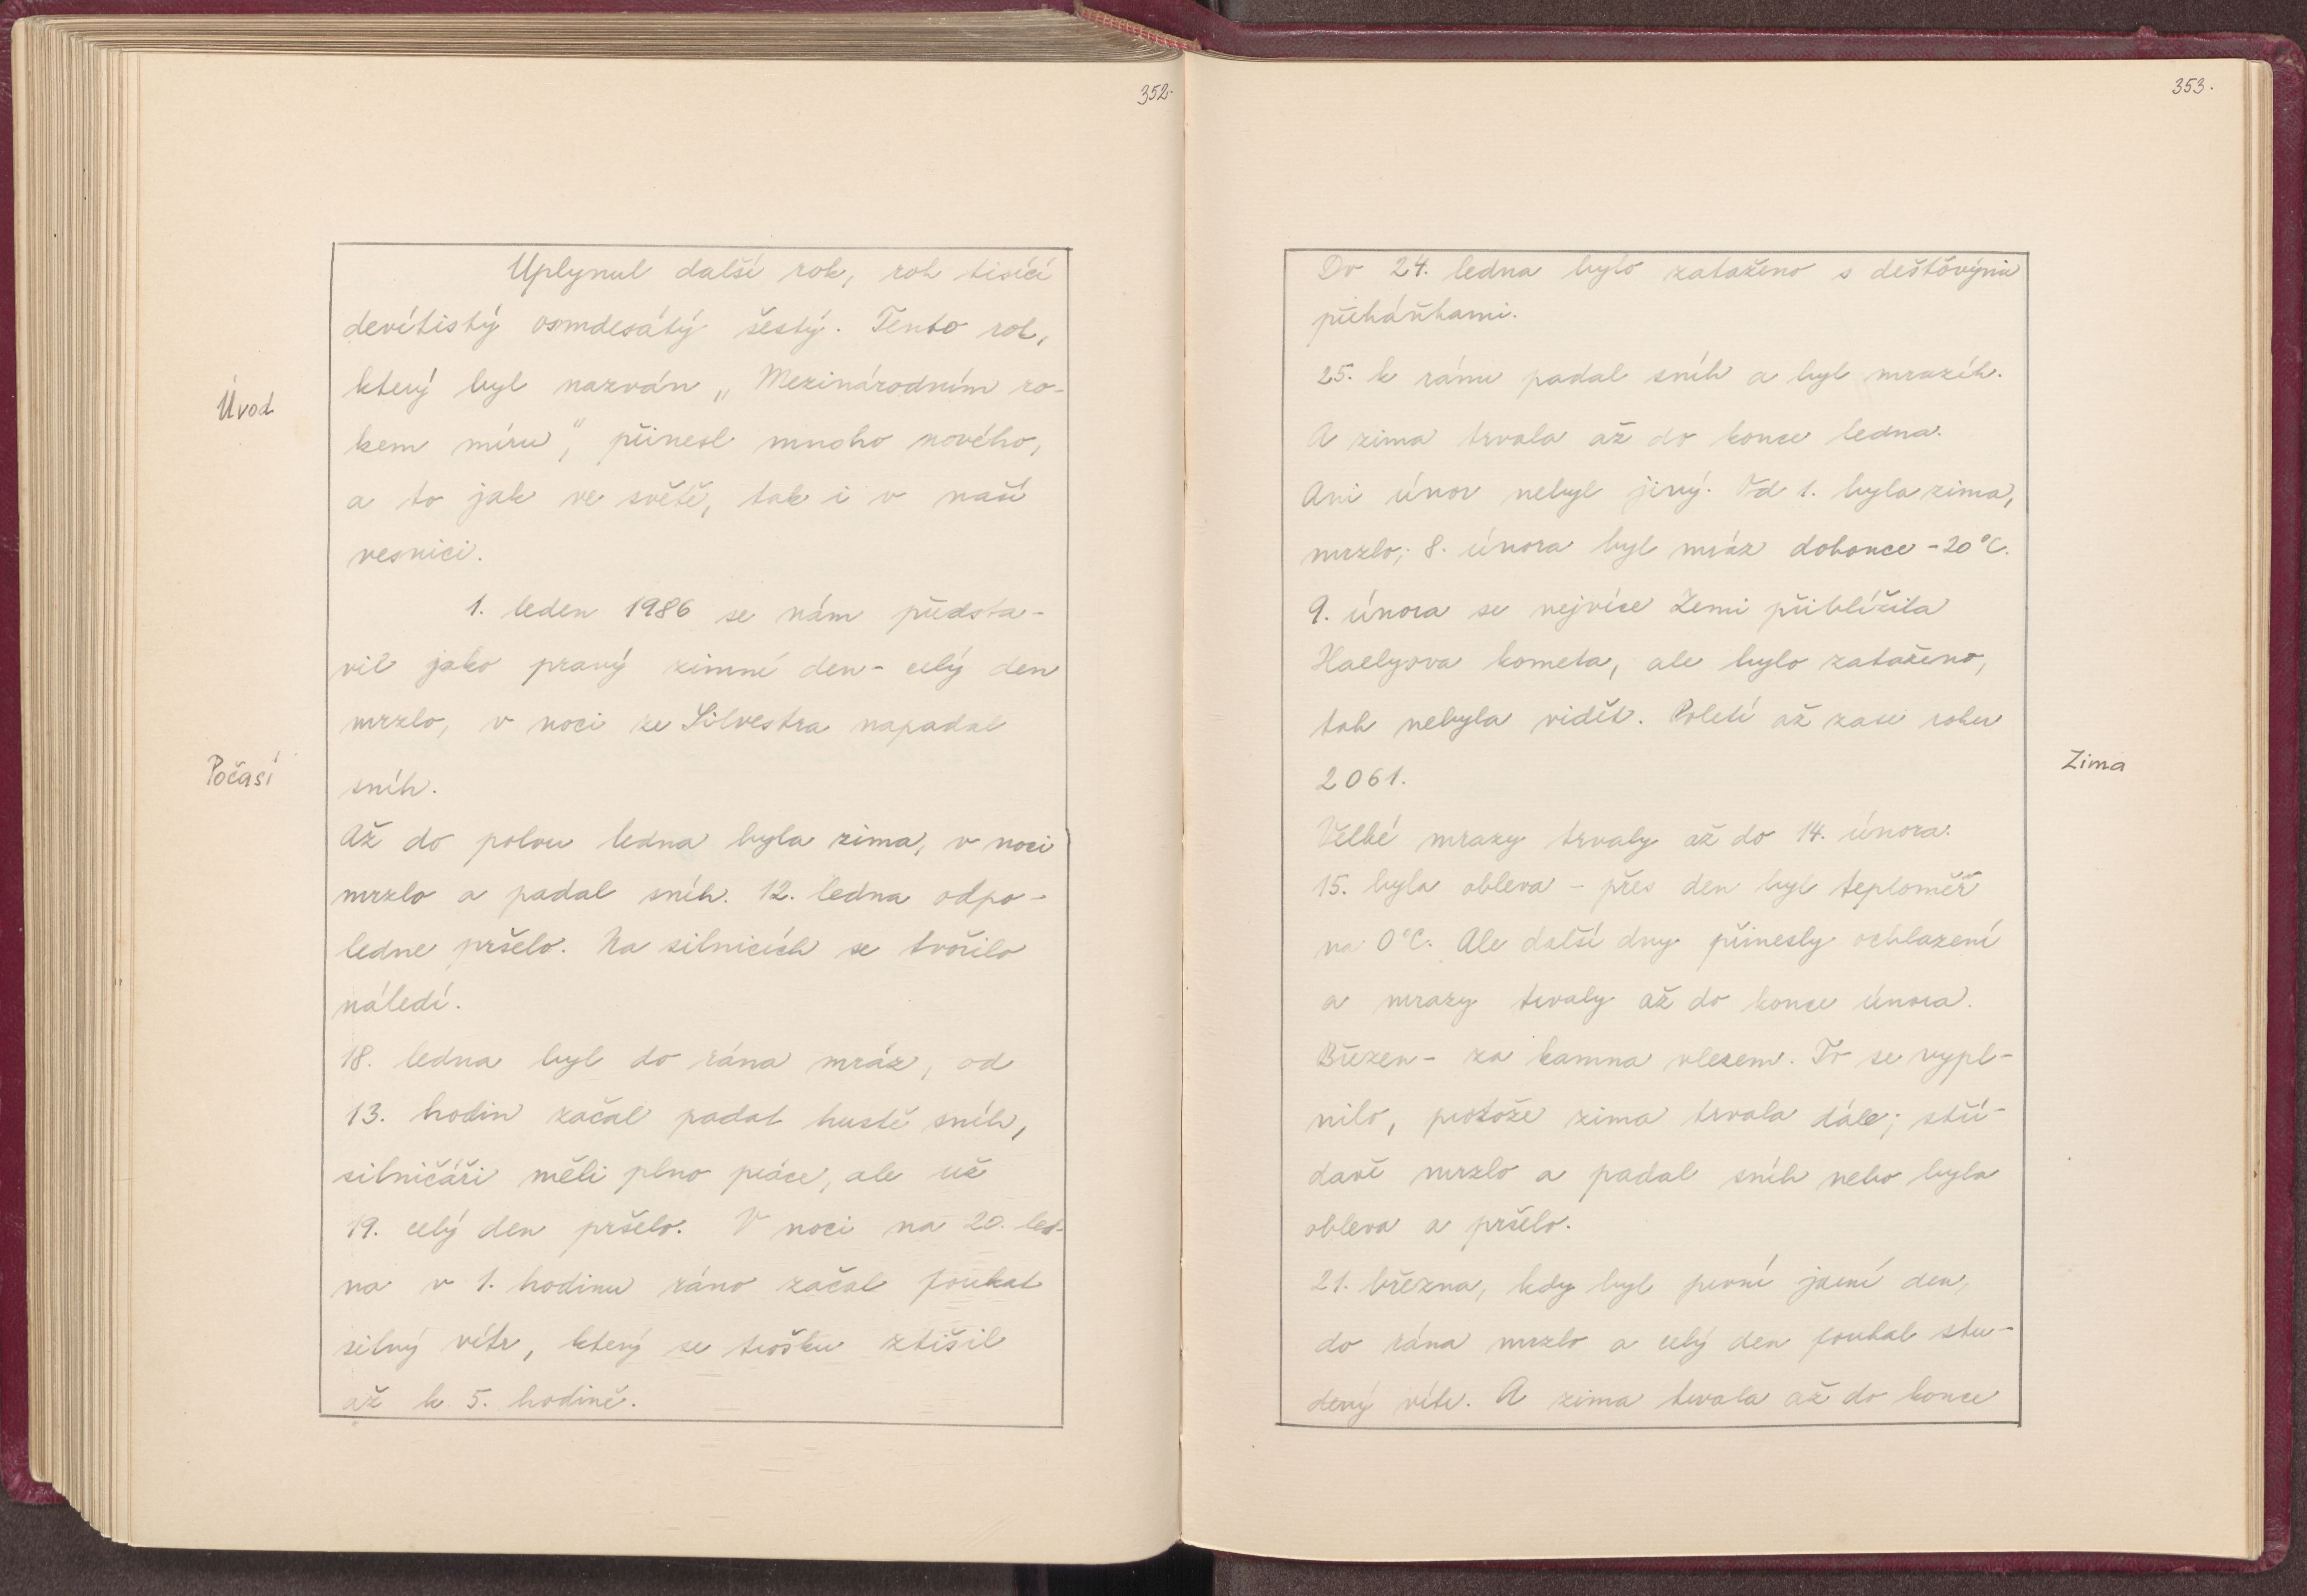 352.
Úvod
Počasí
Uplynul další rok, rok tisící
devítistý osmdesátý šestý. Tento rok,
který byl nazván „Mezinárodním ro-
kem míru", přinesl mnoho nového,
a to jak ve světě, tak i v naší
vesnici.
1. leden 1986 se nám předsta-
vil jako pravý zimní den - celý den
mrzlo, v noci ze Silvestra napadal
sníh.
Až do polou ledna byla zima, v noci
mrzlo a padal sníh. 12. ledna odpo-
ledne pršelo. Na silnicích se tvořilo
náledí.
18. ledna byl do rána mráz, od
13. hodin začal padat hustě sníh,
silničáři měli plno práce, ale už
19. celý den pršelo. V noci na 20. led-
na v 1. hodinu ráno začal foukat
silný vítr, který se trošku ztišil
až k 5. hodině.
353.
Do 24. ledna bylo zataženo s dešťovými
přeháňkami.
25. k ránu padal sníh a byl mrazík.
A zima trvala až do konce ledna.
Ani únor nebyl jiný. Od 1. byla zima,
mrzlo; 8. února byl mráz dokonce -20°C.
9. února se nejvíce Zemi přiblížila
Haelyova kometa, ale bylo zataženo,
tak nebyla vidět. Poletí až zase roku
2061.
Velké mrazy trvaly až do 14. února.
15. byla obleva - přes den byl teploměr
na 0°C. Ale další dny přinesly ochlazení
a mrazy trvaly až do konce února.
Březen - za kamna vlezem. To se vypl-
nilo, protože zima trvala dále; stří-
davě mrzlo a padal sníh nebo byla
obleva a pršelo.
21. března, kdy byl první jarní den,
do rána mrzlo a celý den foukal stu-
dený vítr. A zima trvala až do konce
Zima